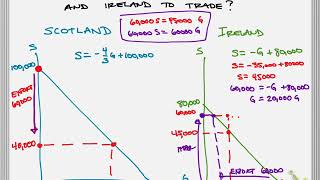 AND IRELAND TO TRADE?
60,000 S = 45000 G
60,000 S = 60000 G
SCOTLAND
IRELAND
S = -4/3 G + 100,000
S = -G + 80,000
S = -35,000 + 80000
S = 45000
60,000 = -G + 80,000
G = 20,000 G
S
S
100,000
EXPORT
60,000
40,000
80,000
60,000
45,000
EXPORT 60,000